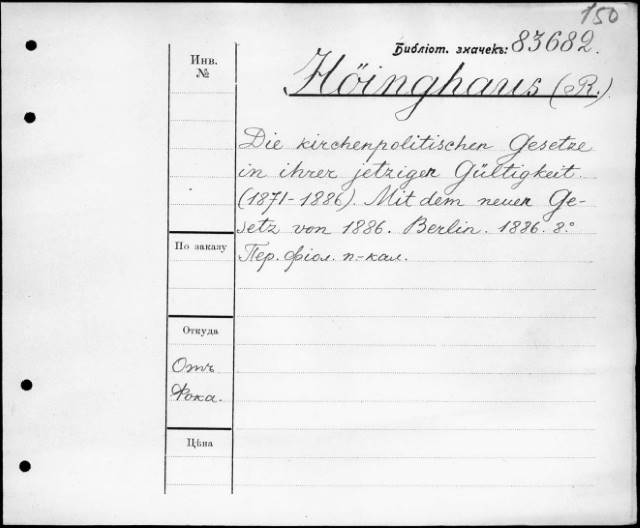 150
Библіот. значекъ: 83682.
Инв.
№
Höinghaus (R.)
Die kirchenpolitischen Gesetze
in ihrer jetzigen Gültigkeit.
(1871-1886). Mit dem neuen Ge-
setz von 1886. Berlin. 1886. 8.°
По заказу
Пер. фіол. п.-кал.
Откуда
Отъ
Фока.
Цѣна